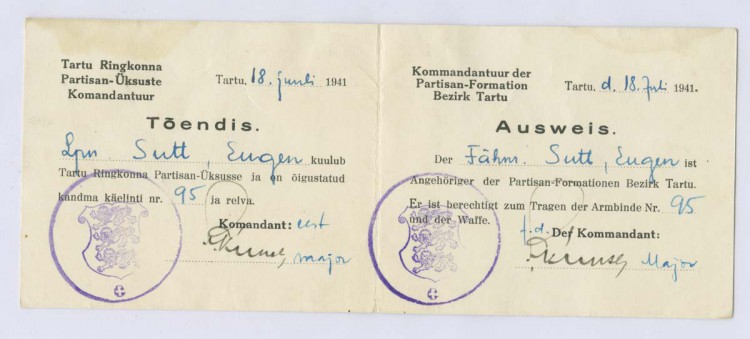 Tartu Ringkonna
Partisan-Üksuste
Komandantuur
Tartu, 18. juuli 1941
Tõendis.
Lpn. Sutt, Eugen kuulub
Tartu Ringkonna Partisan-Üksusse ja on õigustatud
kandma käelinti nr. 95 ja relva.
Komandant: eest
major
Kommandantuur der
Partisan-Formation
Bezirk Tartu
Tartu, d. 18. Juli 1941.
Ausweis.
Der Fähnr. Sutt, Eugen ist
Angehöriger der Partisan-Formationen Bezirk Tartu.
Er ist berechtigt zum Tragen der Armbinde Nr. 95
und der Waffe.
f.d. Der Kommandant:
Major